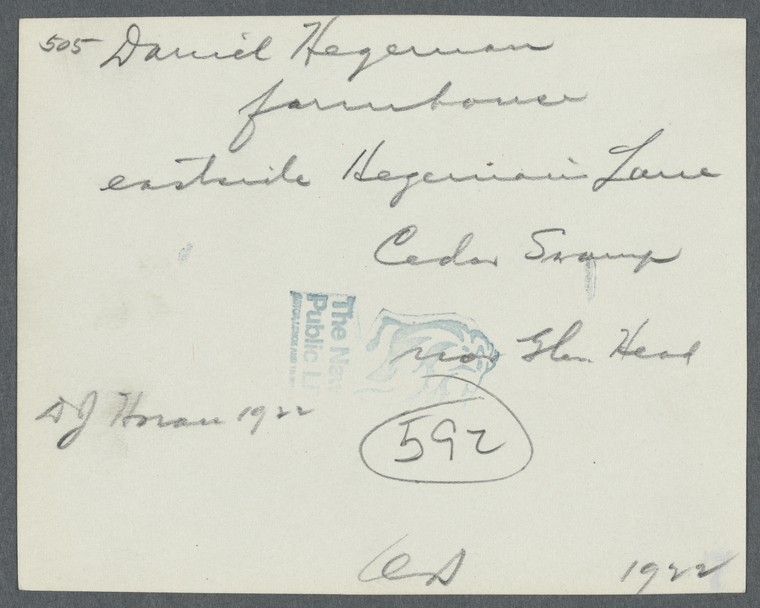 505 Daniel Hegeman
farmhouse
eastside Hegeman's Lane
Cedar Swamp
The New
Public Li
near Glen Head
D J Horan 1922
592
1922